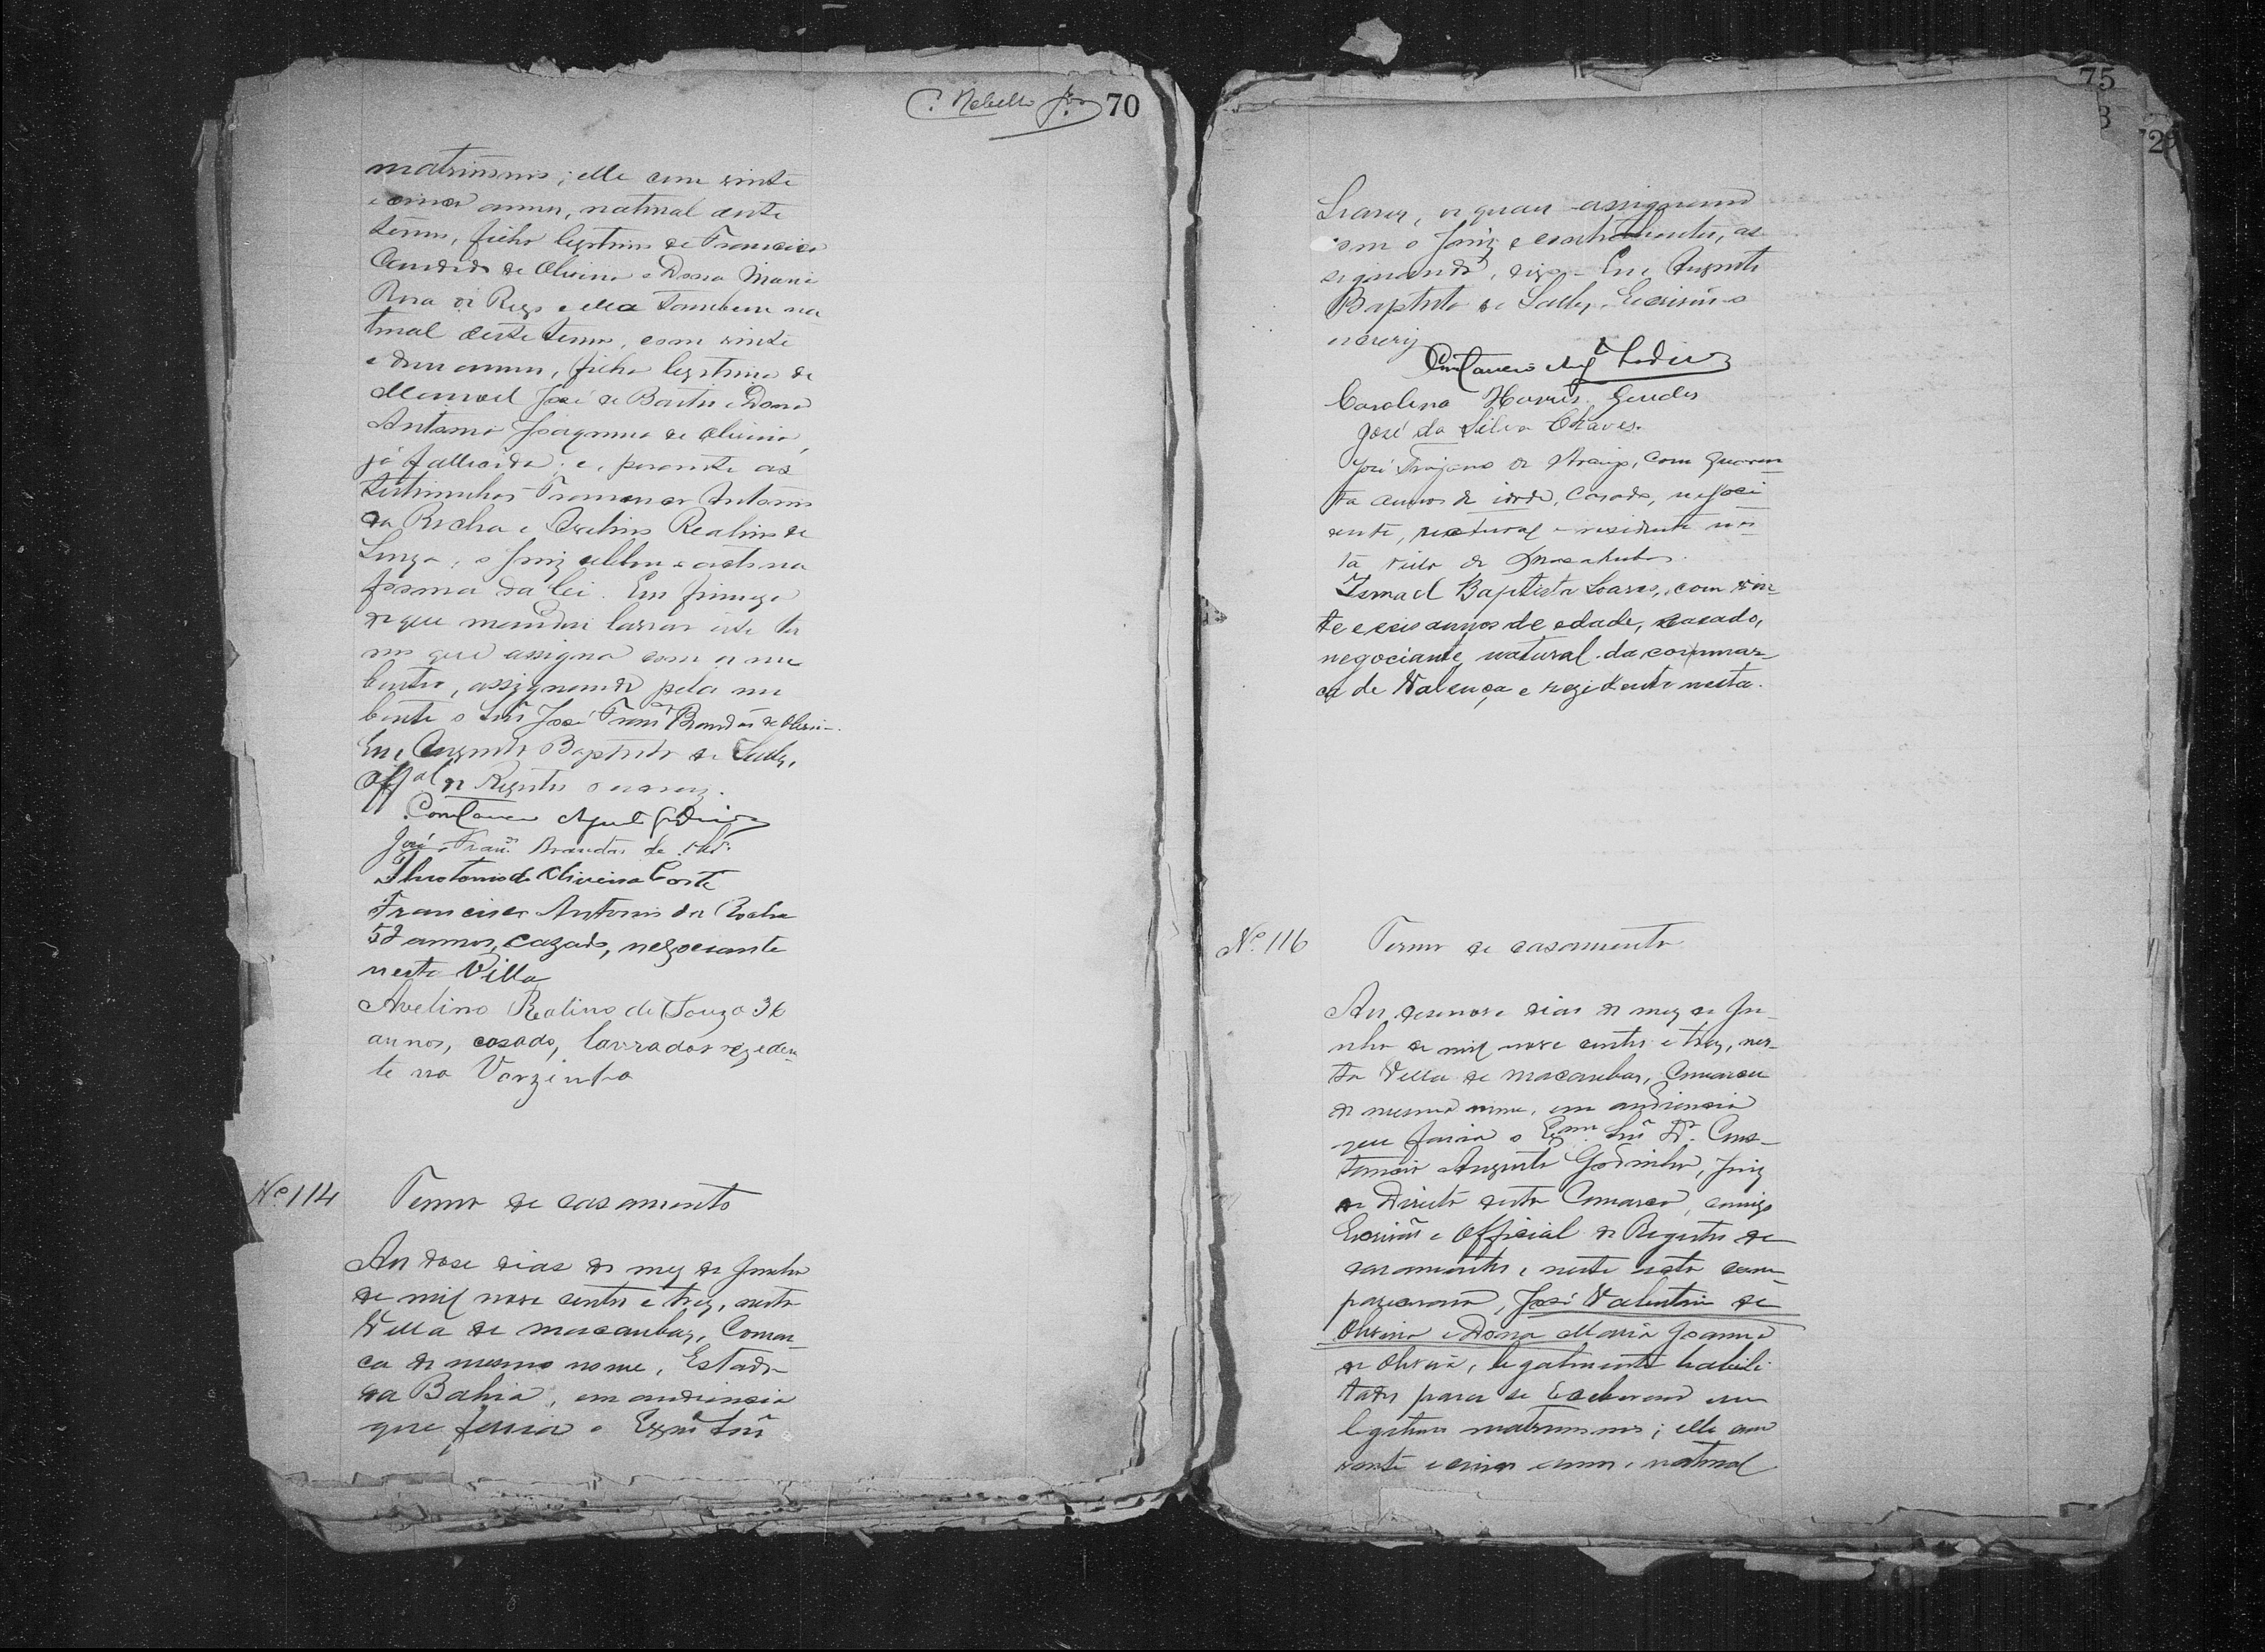 C. Rebello Jor. 70
matrimonio; elle com vinte
e cinco annos, natural deste
termo, filho legitimo de Francisco
Candido de Oliveira e Dona Maria
Rosa do Rego e ella tambem na
tural deste termo, com vinte
e dous annos, filha legitima de
Manoel José de Bastos e Dona
Antonia Joaquina de Oliveira,
já fallecida; e, perante as
testimunhas Francisco Antonio
da Rocha e Avelino Realino de
Souza, o Juiz celebrou o acto na
forma da lei. Em firmeza
do que mandou lavrar este ter
mo que assigna com o nu
bente, assignando pela nu
bente o Snr José Franco Brandão de Oliveira.
Eu, Augusto Baptista de Salles,
Offal do Registro o escrevy.
Constancio Augusto Godinho
José Franco Brandão de Olivra
Theotonio de Oliveira Costa
Francisco Antonio da Rocha
52 annos, cazado, negociante
nesta Villa
Avelino Realino de Souza 36
annos, casado, lavrador rezeden
te na Varzinha
No 114 Termo de casamento
Aos dose dias do mez de Junho
de mil nove centos e trez, nesta
Villa de Macaubas, Comar
ca do mesmo nome, Estado
da Bahia, em audiencia
que fasia o Exmo Snr
75
3
72
Soares, os quaes assignarão
com o Juiz e contrahentes, as
signando, digo – Eu, Augusto
Baptista de Salles, Escrivão o
escrevy
Constancio Augto Godinho
Carolina Guedes
José da Silva Chaves.
José Trajano de Araujo, com quaren
ta annos de idade, casado, negoci
ante, natural e residente nes
ta villa de Macaubas.
Ismael Baptista Soares, com vin
te e seis annos de edade, casado,
negociante, natural da commar
ca de Valença e rezidente nesta.
No 116 Termo de casamento
Aos desenove dias do mez de Ju
nho de mil nove centos e trez, nes
ta Villa de Macaubas, Comarca
do mesmo nome, em audiencia
que fasia o Exmo Snr Dr. Cons
tancio Augusto Godinho, Juiz
de Direito desta Comarca, comigo
Escrivão e Official do Registro de
casamentos, e neste acto com
parecerão, José Valentim de
Oliveira e Dona Maria Joanna
de Oliveira, legalmente habili
tados para se receberem em
legitimo matrimonio; elle com
vinte e cinco annos, natural